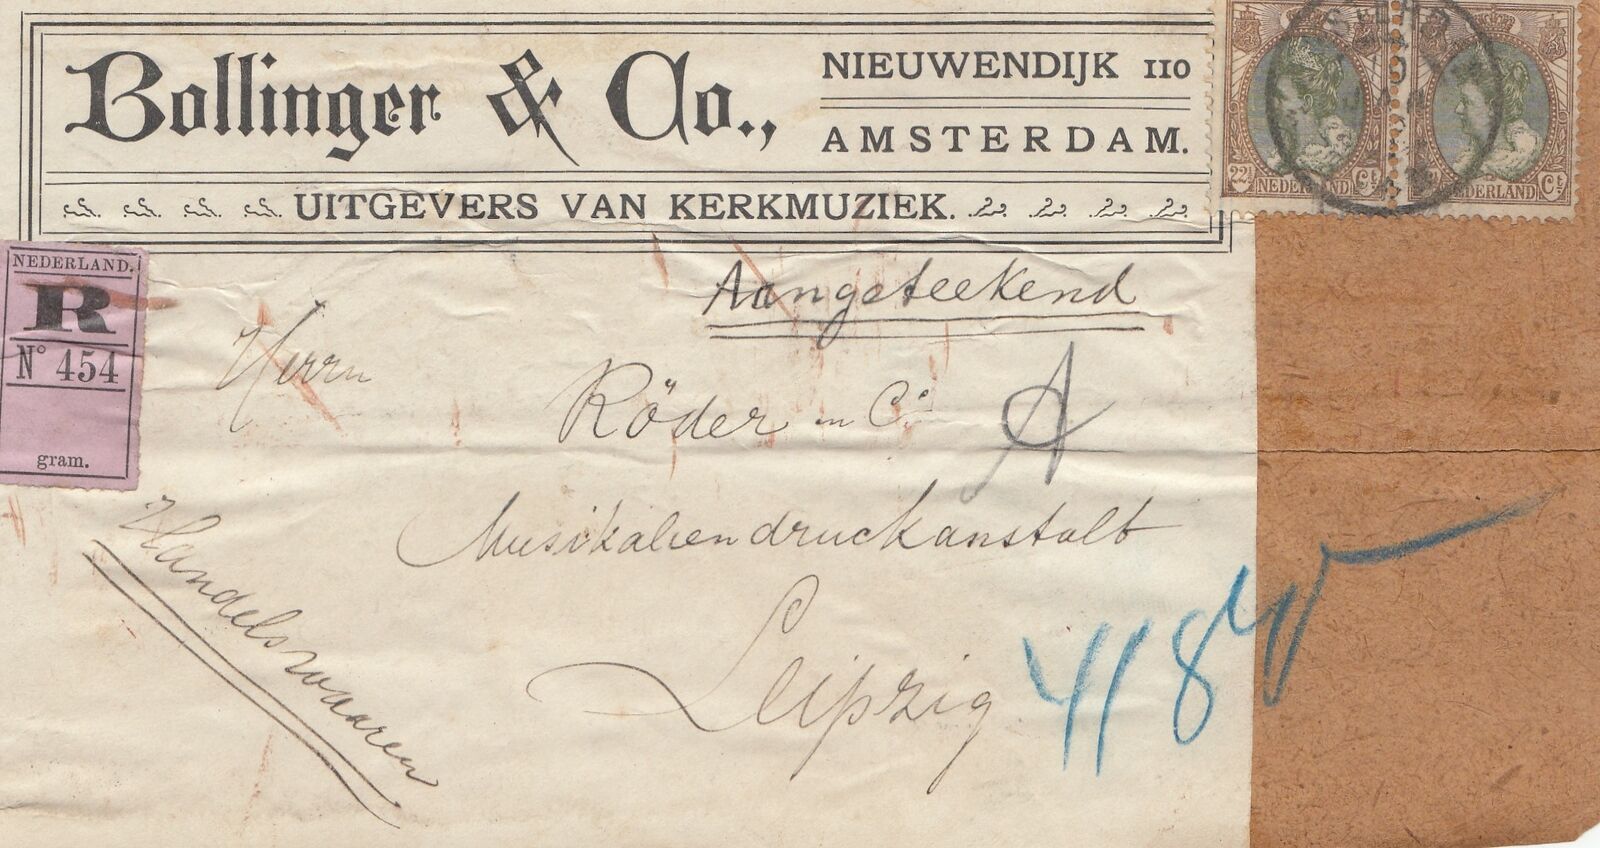 Bollinger & Co.,
NIEUWENDIJK 110
AMSTERDAM.
UITGEVERS VAN KERKMUZIEK.
22½ NEDERLAND Ct.
NEDERLAND Ct.
NEDERLAND.
R
No 454
gram.
Aangeteekend
Herrn
Röder en Co
A
Musikaliendruckanstalt
Leipzig
Handelswaaren